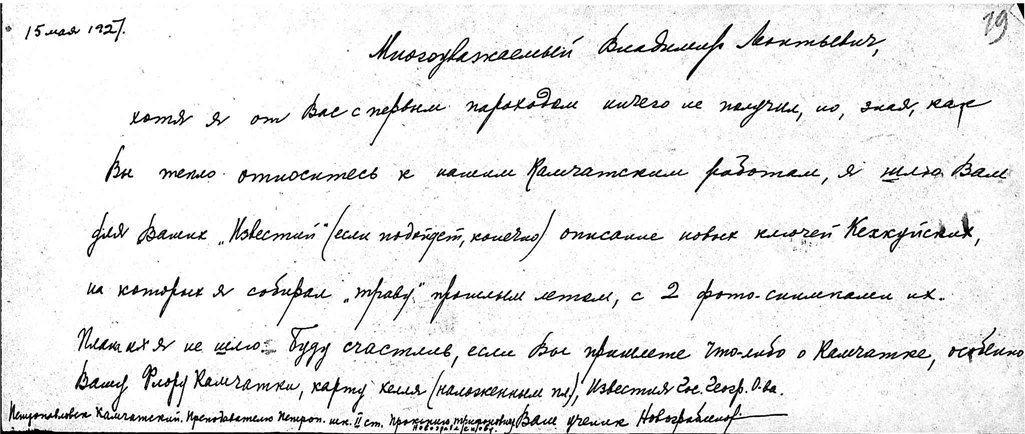 15 мая 1927.
79
Многоуважаемый Владимир Леонтьевич,
хотя я от Вас с первым пароходом ничего не получил, но, зная, как
Вы тепло относитесь к нашим Камчатским работам, я шлю Вам
для Ваших „Известий" (если подойдет, конечно) описание новых ключей Кехкуйских,
на которых я собирал „траву" прошлым летом, с 2 фото-снимками их.
План их я не шлю. Буду счастлив, если Вы пришлете что-либо о Камчатке, особенно
Вашу Флору Камчатки, карту Келля (наложенным пл), Известия Гос. Геогр. О-ва.
Петропавловск Камчатский. Преподавателю Петроп. шк. II ст. Прокопию Трифоновичу Ваш ученик Новограбленов
Новограбленову.